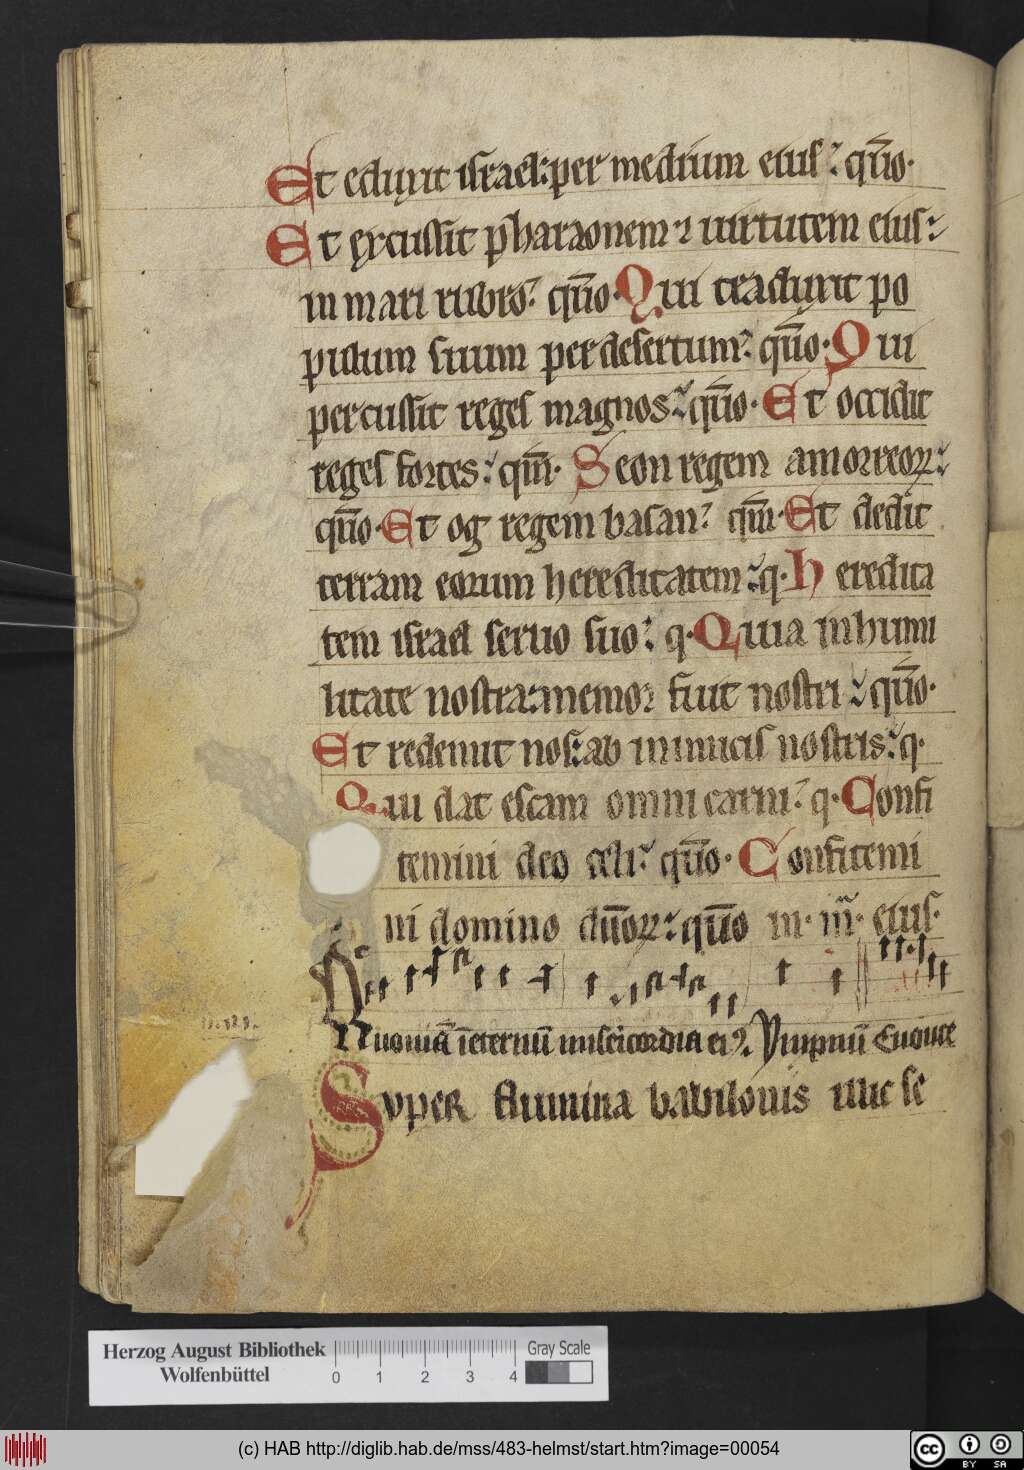 Et eduxit israel: per medium eius: quō
Et excussit pharaonem ⁊ uirtutem eius:
in mari rubro: quō. Qui traduxit po
pulum suum per desertum: quō. Qui
percussit reges magnos: quō. Et occidit
reges fortes: qm̄. Seon regem amorreoꝝ:
quō. Et og regem basan: qm̄. Et dedit
terram eorum hereditatem: q. heredita
tem israel seruo suo: q. Quia in humi
litate nostra: memor fuit nostri: quō.
Et redemit nos: ab inimicis nostris: q.
Qui dat escam omni carni: q. Confi
temini deo celi: quō. Confitemi
ni domino dn̄oꝝ: quō in. m̄. eius.
Quoniā ī eternū misericordia ei⁹. Ympnū
Super flumina babilonis illic se
Herzog August Bibliothek
Wolfenbüttel
0 1 2 3 4
Gray Scale
(c) HAB http://diglib.hab.de/mss/483-helmst/start.htm?image=00054
cc BY SA